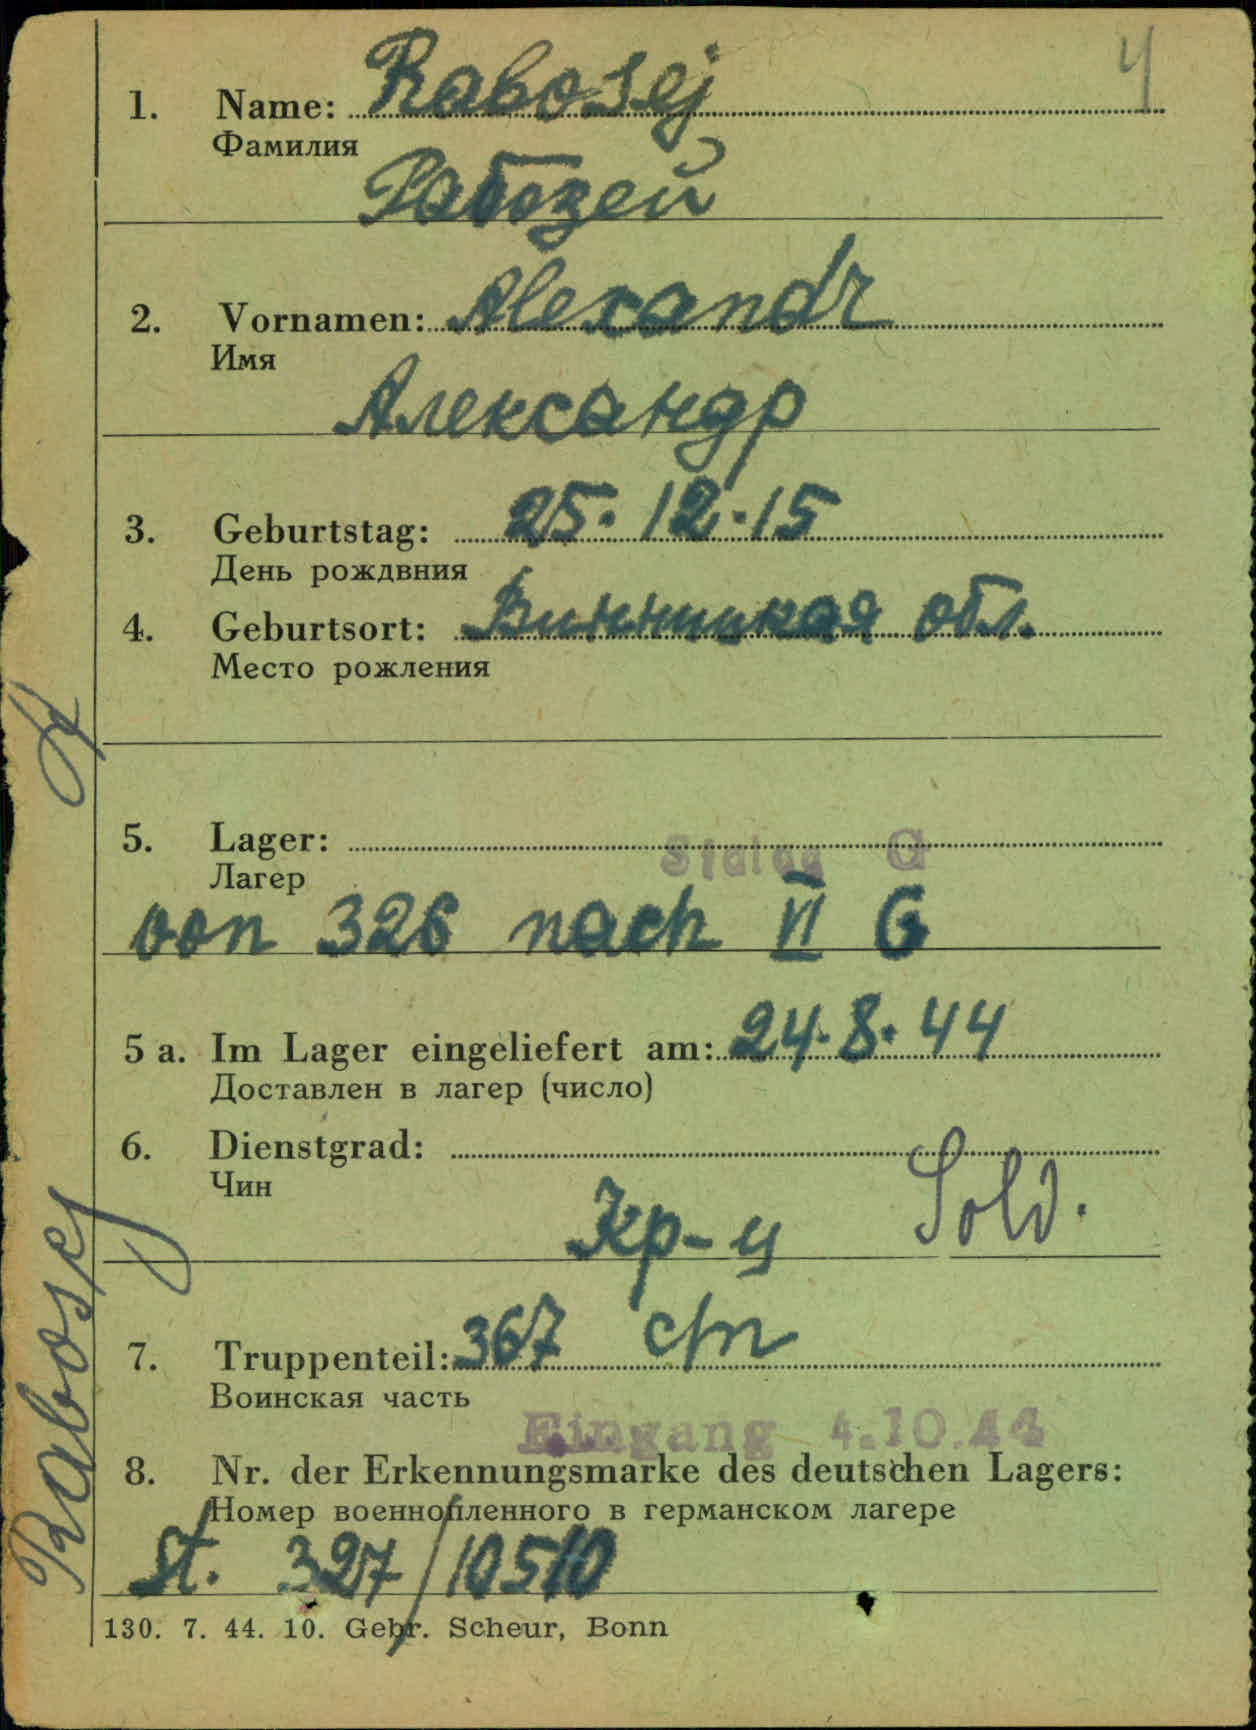 4
1. Name: Rabosej
Фамилия
Рабозей
2. Vornamen: Alexandr
Имя
Александр
3. Geburtstag: 25.12.15
День рождвния
4. Geburtsort: Винницкая обл.
Место рожления
5. Lager: Stalag G
Лагер
von 326 nach VI G
5 a. Im Lager eingeliefert am: 24.8.44
Доставлен в лагер (число)
6. Dienstgrad:
Чин
Кр-ц Sold.
7. Truppenteil: 367 с/п
Воинская часть
Eingang 4.10.44
8. Nr. der Erkennungsmarke des deutschen Lagers:
Номер военнопленного в германском лагере
St. 327/10510
130. 7. 44. 10. Gebr. Scheur, Bonn
Rabosej A